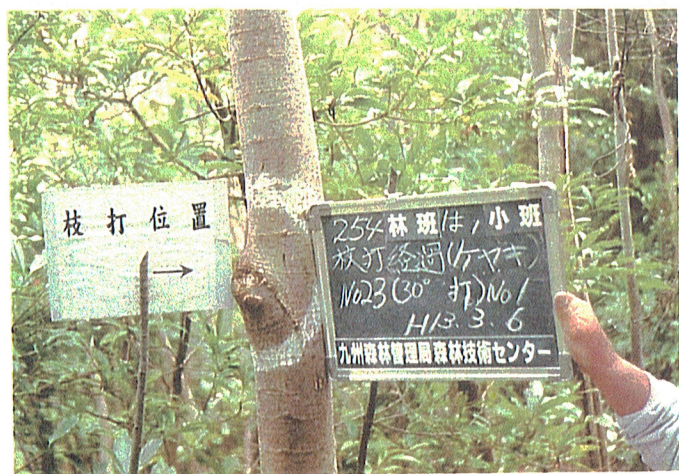 枝打位置
→
254林班は,小班
枝打経過(ケヤキ)
No23(30°打)No1
H13.3.6
九州森林管理局森林技術センター